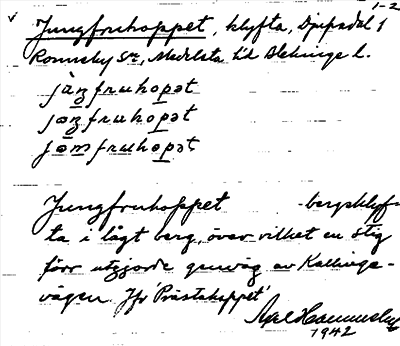 v 1-2
Jungfruhoppet, klyfta, Djupadal 1
Ronneby sn, Medelsta hd Blekinge l.
jàŋfruhopət
jɔŋfruhopət
jɔmfruhopət
Jungfruhoppet bergsklyf-
ta i lågt berg, över vilket en stig
förr utgjorde genväg av Kallinge-
vägen. Jfr 'Prästahoppet'
Axel
1942